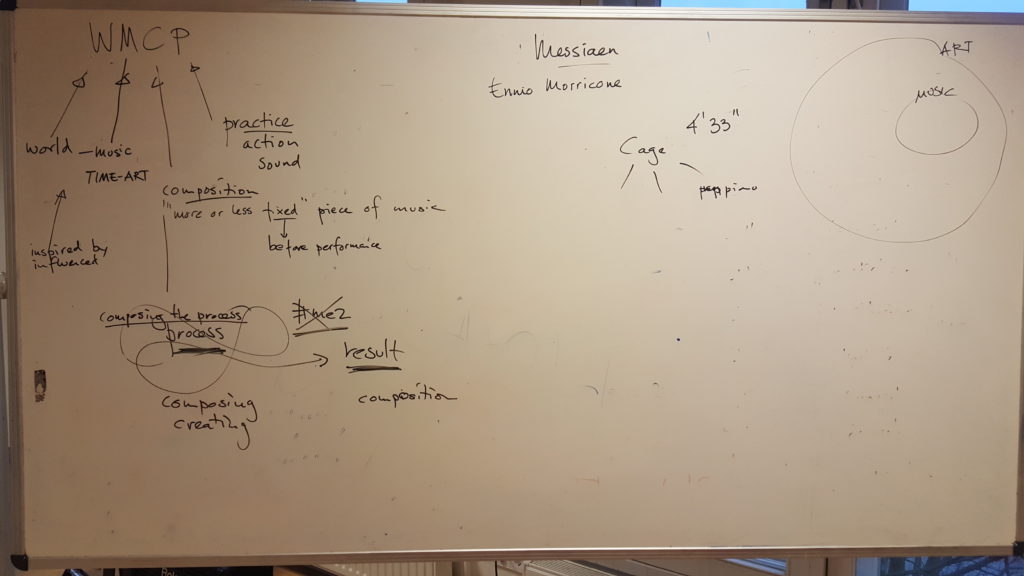 WMCP
world – music
TIME-ART
practice
action
sound
inspired by
influenced
composition
"more or less fixed" piece of music
before performance
composing the process
process
#me2
result
composing
creating
composition
Messiaen
Ennio Morricone
4'33"
Cage
ART
MUSIC